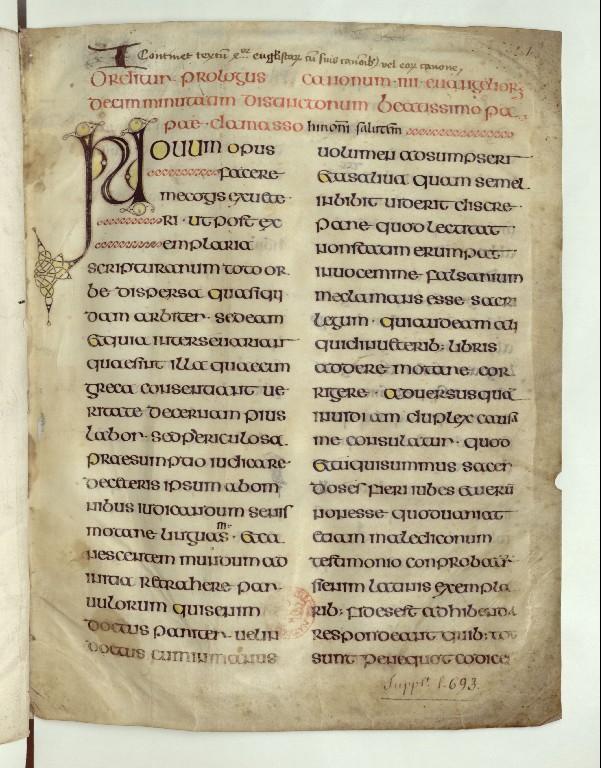 Continet textū euglistaꝝ cū suis canoīb; vel eoꝝ canone,
Orditur· prologus canonum· iiii· euangelior;
decim minutatim distinctonum beatissimo pa
pae· damasso hironi salutem
Nouum opus
facere
mecogis exuete
ri· ut post ex
emplaria
scripturarum toto or
be dispersa quasi qui
dam arbiter· sedeam
& quia interseuariant
quae sint illa quae cum
greca consentiant ue
ritate decernam pius
labor· sed periculosa
praesumptio iudicare·
de ceteris ipsum ab om
nibus iudicandum senis
motare linguas· & ca
nescentem mundum ad
initia retrahere par
uulorum quis enim
doctus pariter· uel in
doctus cum in manus
uolumen adsumpseri
& a saliua quam semel
inbibit uiderit discre
pare quod lectitat
non statim erumpat
in uocem me· falsarium
me clamans esse sacri
legum· qui audeam ali
quid in ueterib; libris
addere motare· cor
rigere· aduersus quā
inuidiam duplex causa
me consulatur· quod
& tu qui summus sacer
dos es fieri iubes & uerū
non esse quod uariat
etiam maledicorum
testimonio conprobatur
si enim latinis exempla
rib; fides est adhibenda
respondeant quib; tot
sunt pene quot codice
Suppl. l. 693.